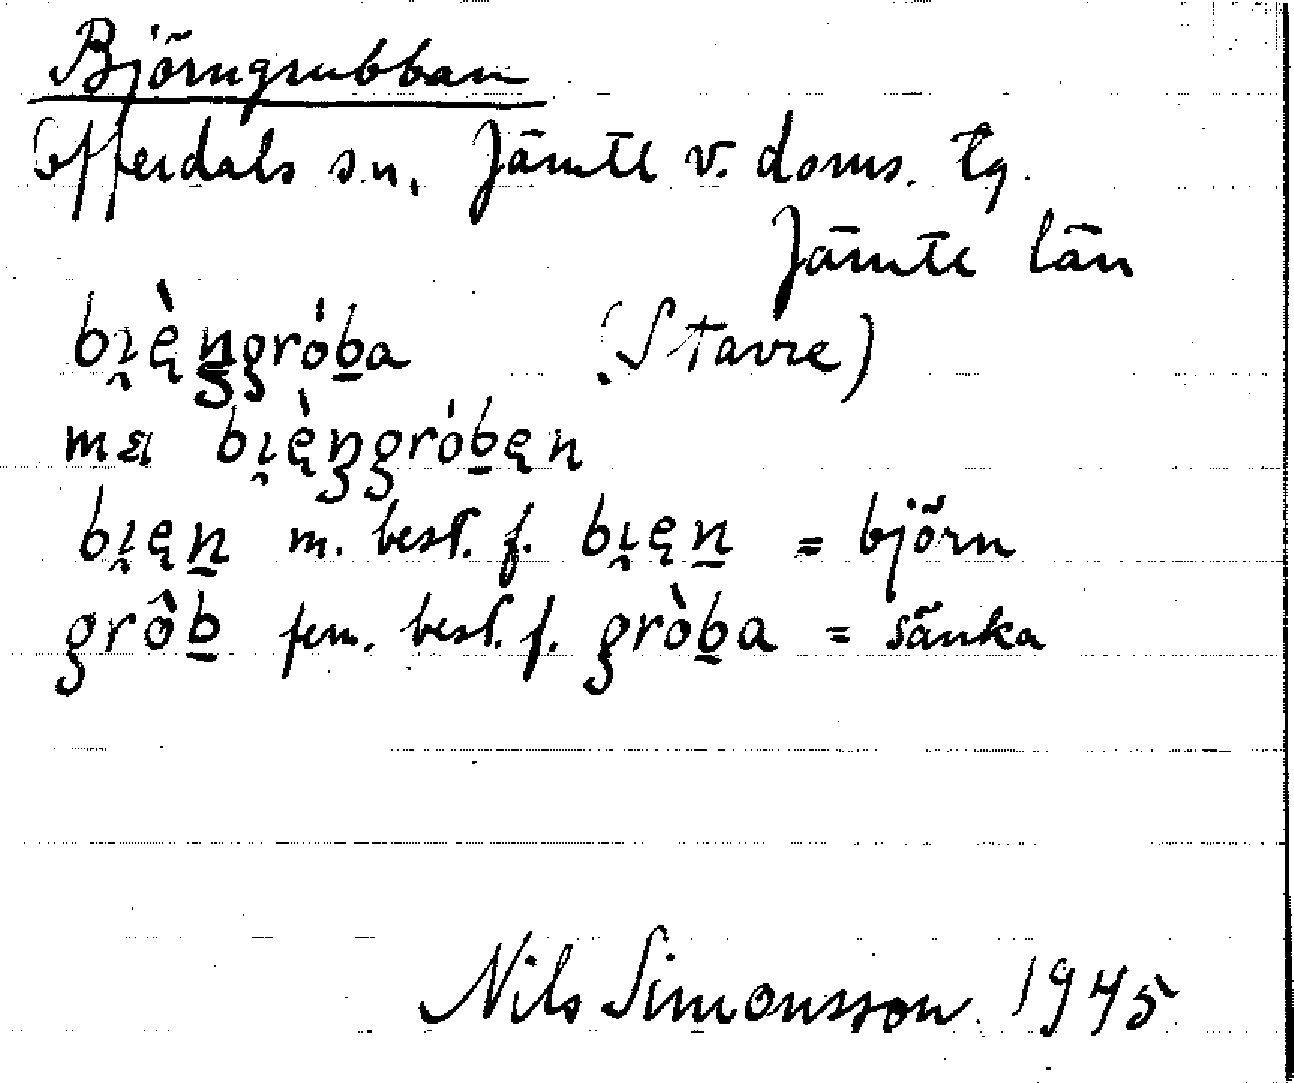 Björngrubban
Offerdals sn. Jämtl v. doms. tg.
Jämtl län
bı̯ę̀n̠grób̠a (Stavre)
bı̯ę̀ngrób̠ęn
bı̯ęn̠ m. best. f. bı̯ęn̠ = björn
grôb̠ fem. best. f. gròb̠a = sänka
Nils Simonsson 1945